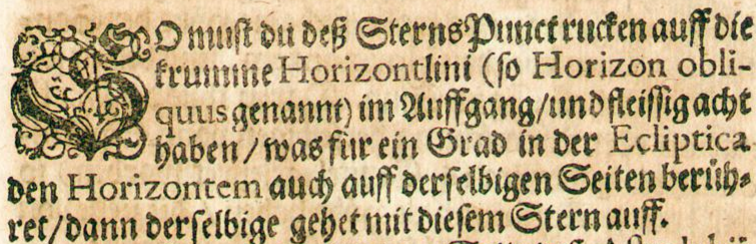 SO must du deß Sterns Punct rucken auff die
krumme Horizontlini (so Horizon obli-
quus genannt) im Auffgang/und fleissig acht
haben/was für ein Grad in der Ecliptica
den Horizontem auch auff derselbigen Seiten berüh-
ret/dann derselbige gehet mit diesem Stern auff.